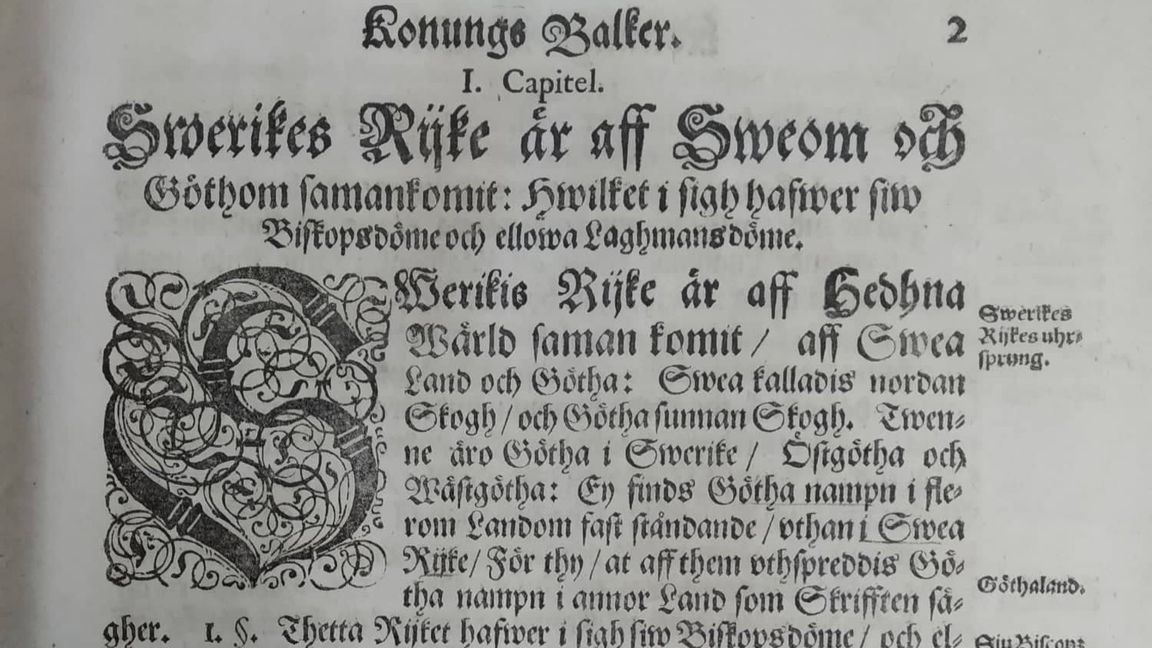 Konungs Balker. 2
I. Capitel.
Swerikes Rijke är aff Sweom och
Göthom samankomit: Hwilket i sigh hafwer siw
Biskopsdöme och ellowa Laghmansdöme.
SWerikis Rijke är aff Hedhna
Wärld saman komit / aff Swea
Land och Götha: Swea kalladis nordan
Skogh / och Götha sunnan Skogh. Twen-
ne äro Götha i Swerike / Östgötha och
Wästgötha: Ey finds Götha nampn i fle-
rom Landom fast ståndande / vthan i Swea
Rijke / För thy / at aff them vthspreddis Gö-
tha nampn i annor Land som Skrifften sä-
gher. 1. §. Thetta Rijket hafwer i sigh siw Biskopsdöme / och el-
Swerikes
Rijkes uhr-
sprung.
Göthaland.